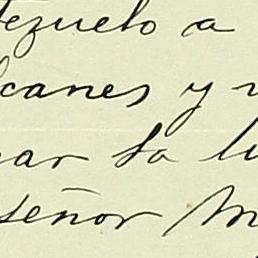 ezuelo a
canes y v
ar la lu
señor M